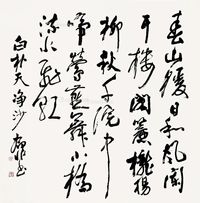 春山暖日和风阑
干楼阁簾櫳楊
柳秋千院中
啼鶯燕舞小橋
流水飛紅
白朴天净沙